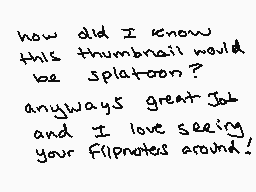 how did I know
this thumbnail would
be splatoon?
anyways great Job
and I love seeing
your flipnotes around!